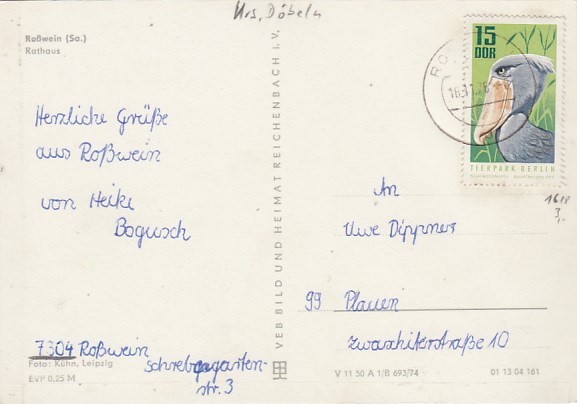 Krs. Döbeln
Roßwein (Sa.)
Rathaus
Herzliche Grüße
aus Roßwein
von Heike
Bogusch
7304 Roßwein
Schrebergarten-
str. 3
Foto: Kühn, Leipzig
EVP 0,25 M
VEB BILD UND HEIMAT REICHENBACH I. V.
15
DDR
TIERPARK BERLIN
16.11.76
1618
3,-
An
Uwe Dippner
99 Plauen
10
V 11 50 A 1/B 693/74
01 13 04 161